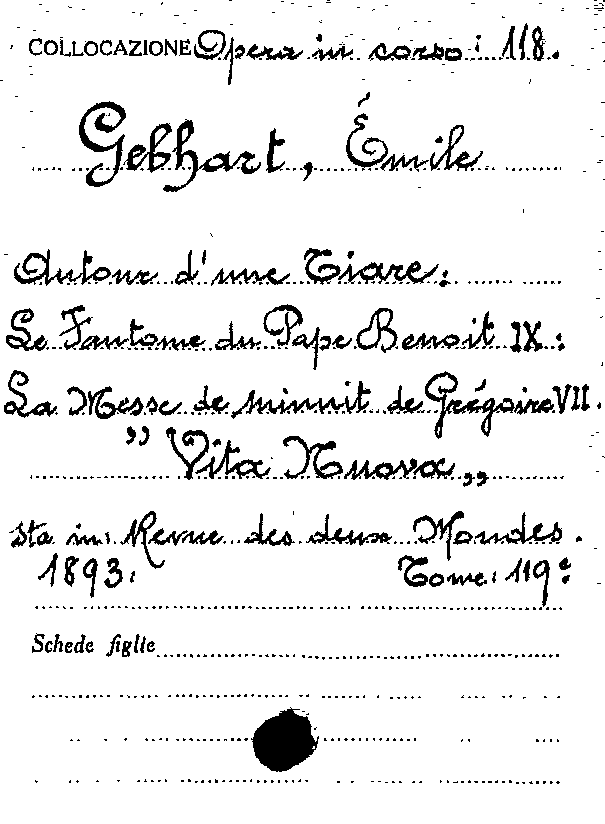 COLLOCAZIONE Opera in corso: 118.
Gebhart, Émile
Autour d'une Tiare:
Le Fantome du Pape Benoit IX:
La Messe de minuit de Grégoire VII.
„ Vita Nuova „
sta in: Revue des deux Mondes.
1893. Tome: 119º
Schede figlie